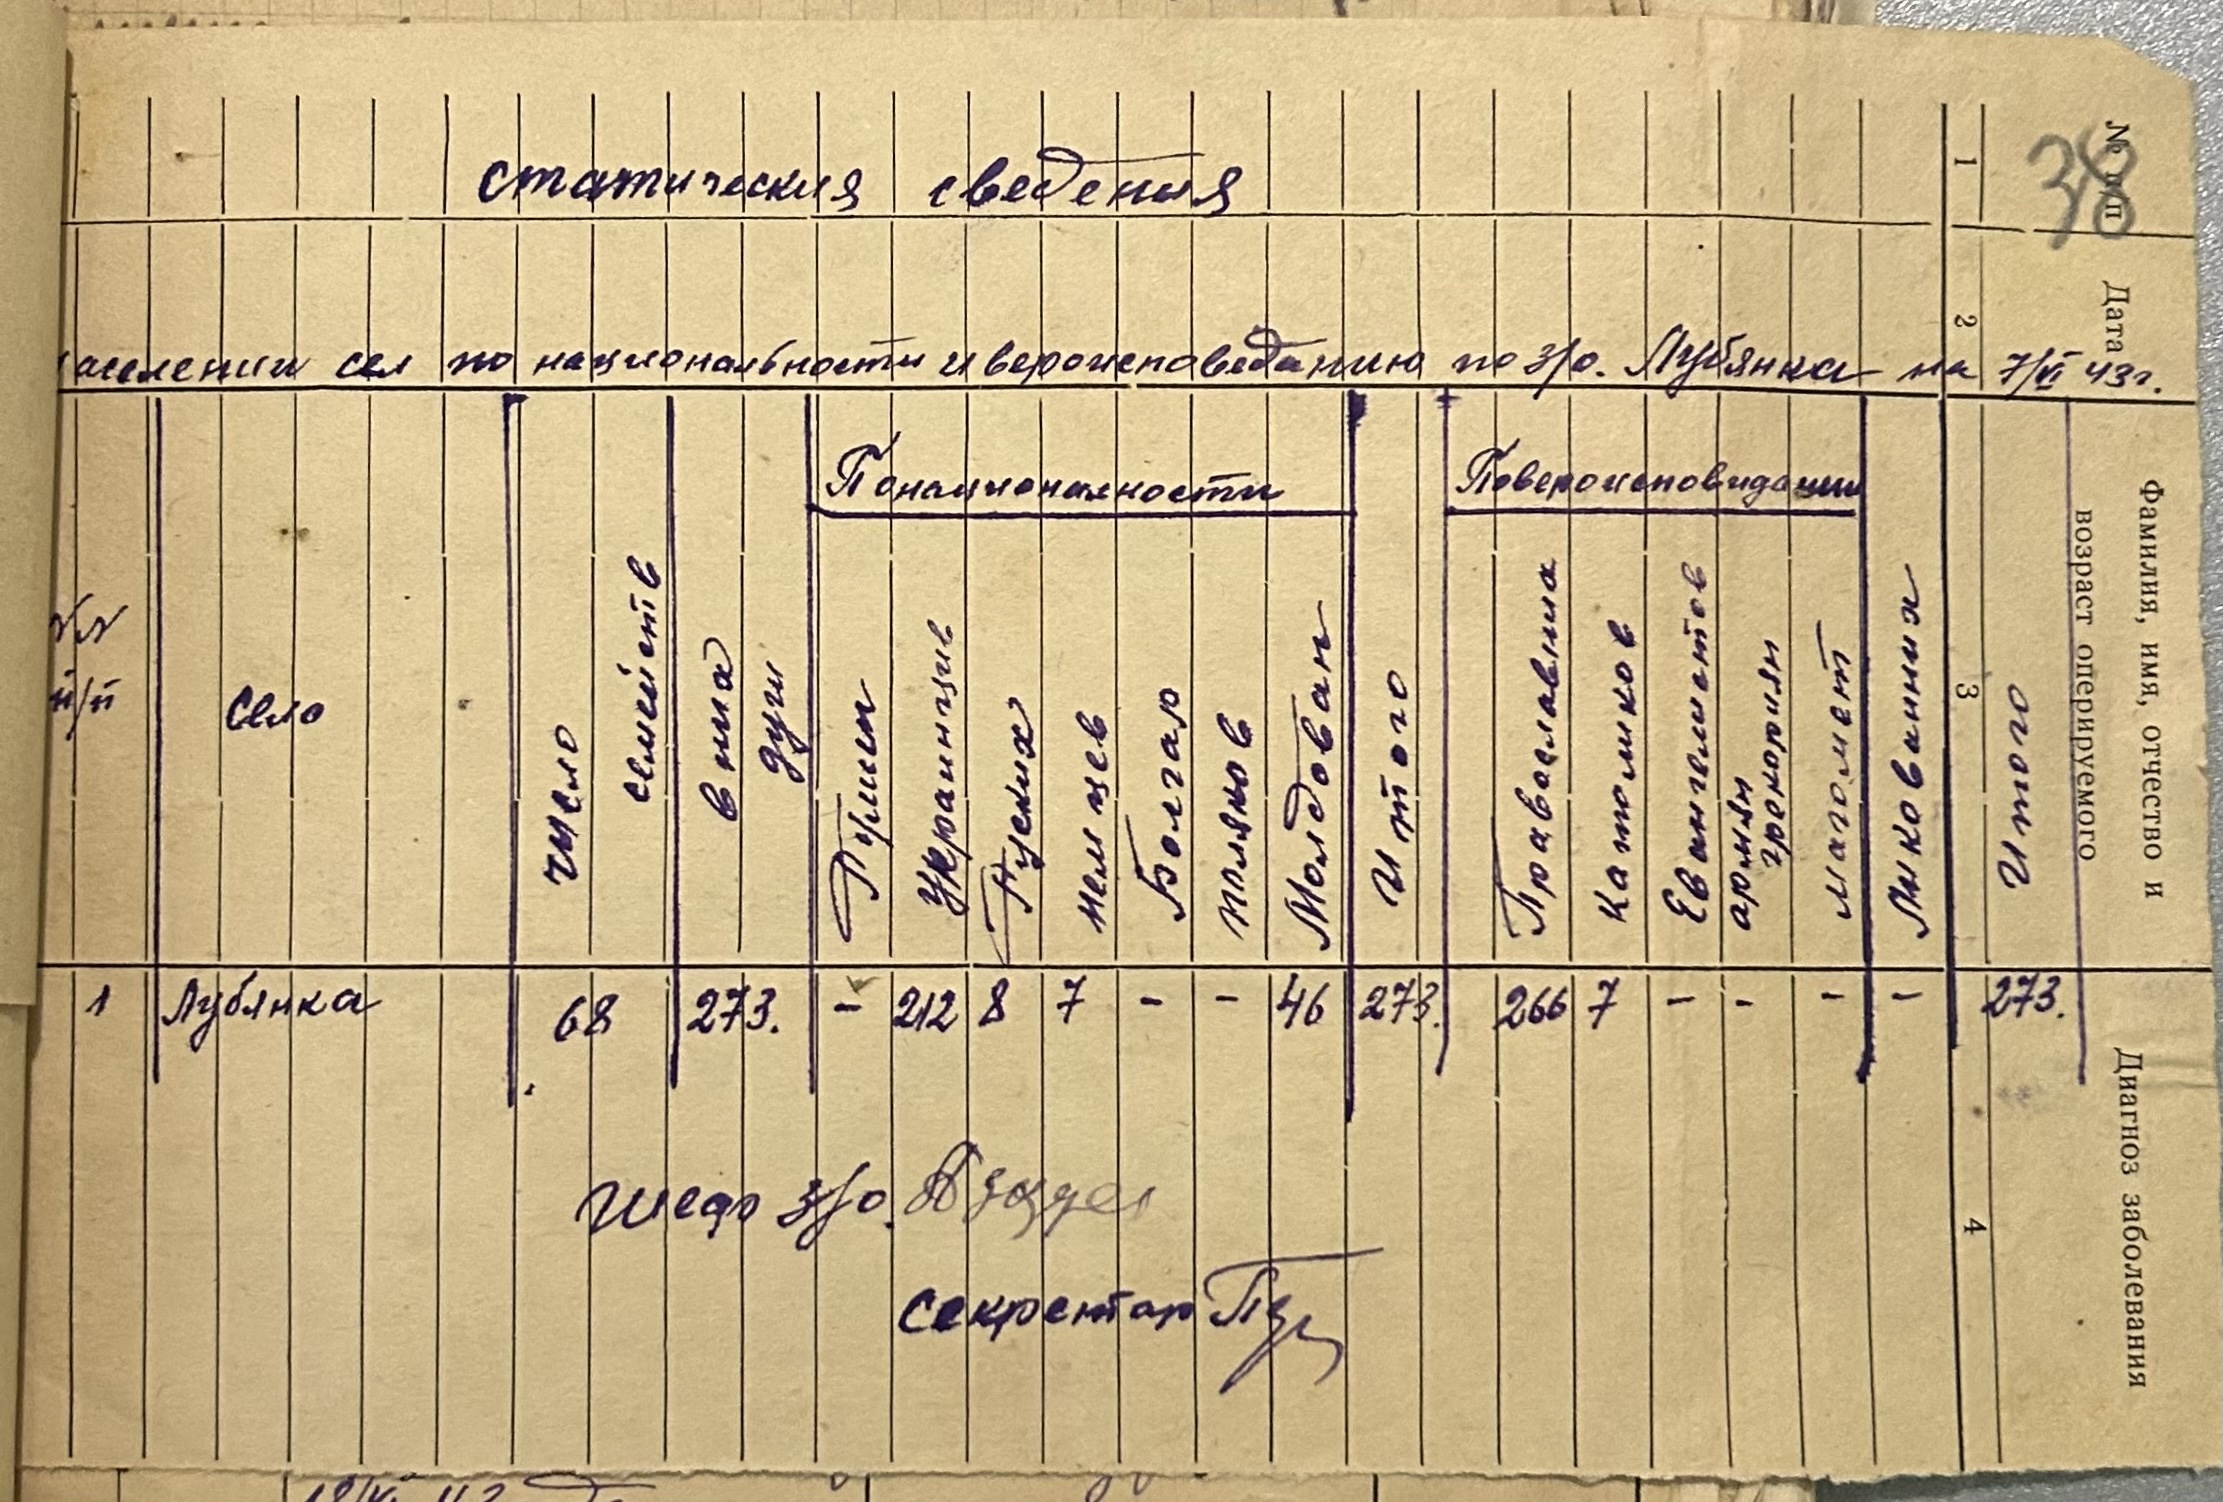 38
№ п/п
Дата
Фамилия, имя, отчество и
возраст оперируемого
Диагноз заболевания
1 2 3 4
статическия сведения
аселении сел по национальности и вероисповеданию по з/о. Лубянка на 7/VI 43г.
Понационалности Повероисповидании
п/п Село Число семейств в них душ Румын Украинцив Руских немцев Болгар поляков Молдован Итого Православных католиков Евангелистов армян грекориян магомет Итого
1 Лубянка 68 273. - 212 8 7 - - 46 273. 266 7 - - - - 273.
Шеф з/о.
секретар